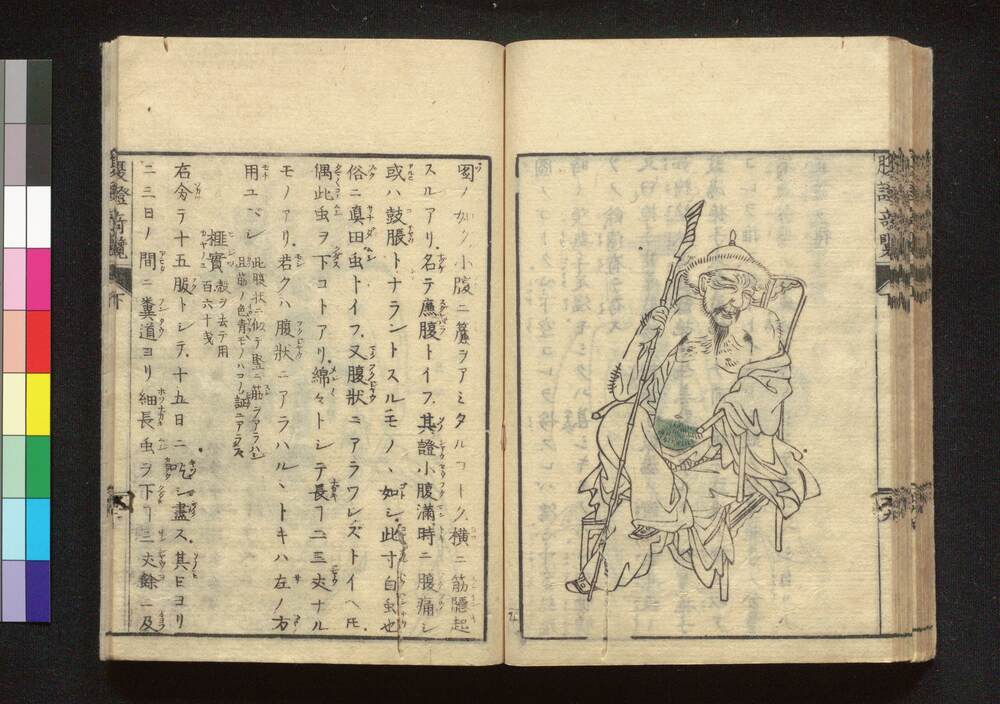 腹證竒覽
下
圖ノ如ク小腹ニ簾ヲアミタルフーク横ニ筋隱起
スルアリ名テ鷹腹トイフ其證小腹滿時ニ腹痛シ
或ハ鼓脹トナラントスルモノヽ如シ此寸白虫也
俗ニ真田虫トイフ又腹状ニアラワレズトイヘ𪜈
偶此虫ヲ下コトアリ綿々トシテ長ヿ二三丈ナル
モノアリ若クハ腹狀ニアラハルヽトキハ左ノ方
用ユベシ
此腹状ニ似テ竪ニ筋ヲアラハシ
且筋ノ色青モノハコノ證ニアラス
榧實 殻ヲ去テ用 百六十戔
右分テ十五服トシテ十五日ニ吃シ盡ス其日ヨリ
二三日ノ間ニ糞道ヨリ細長虫ヲ下ヿ三丈餘ニ及
腹證竒覽
下